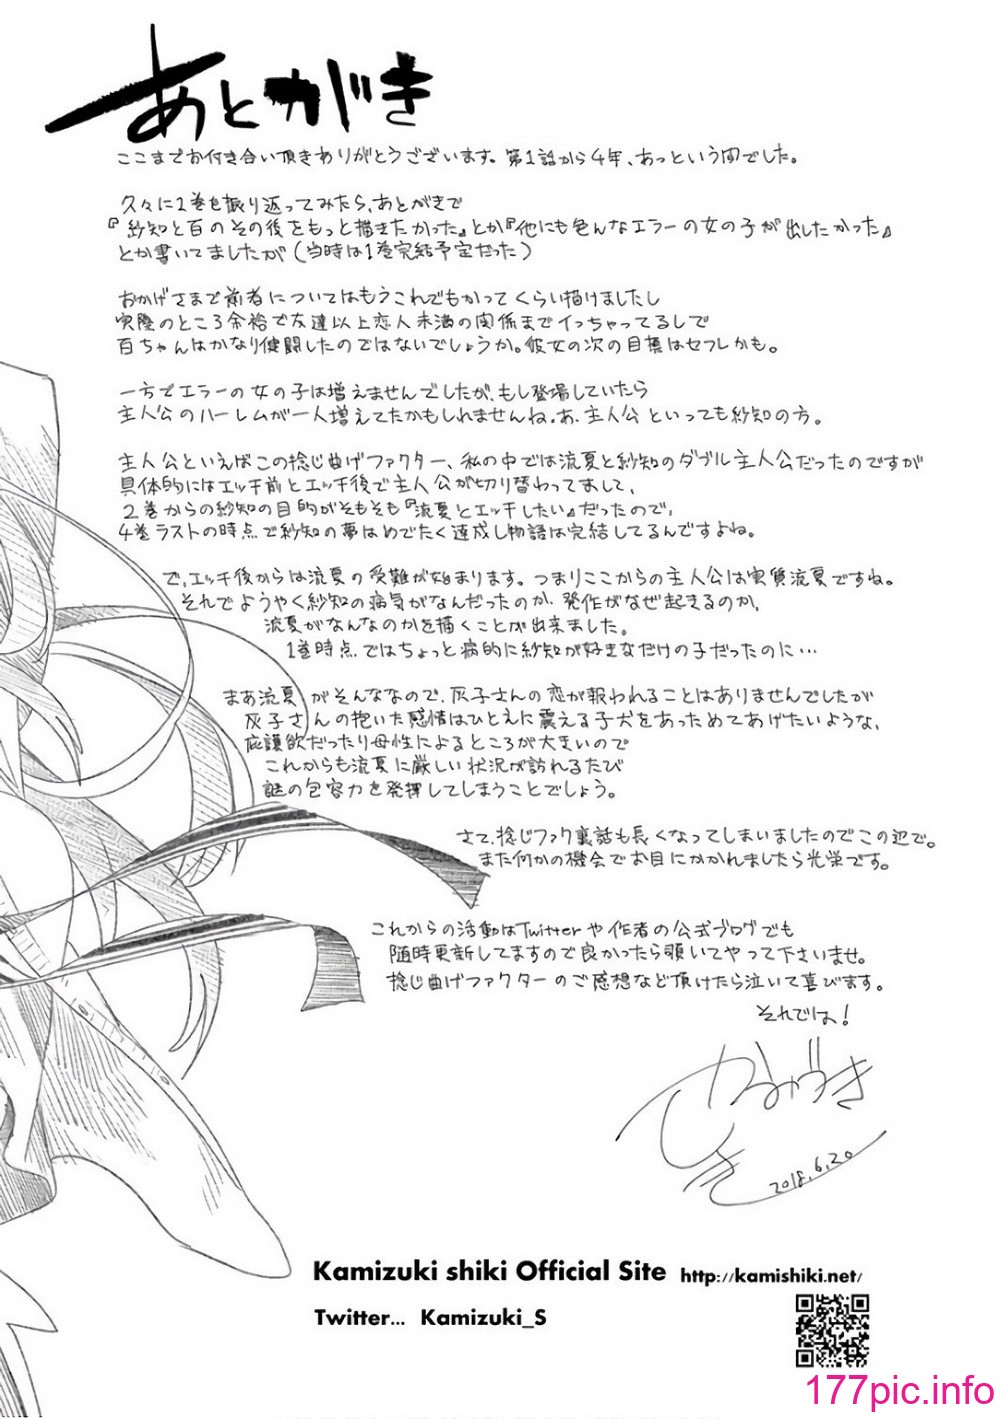 あとがき
ここまでお付き合い頂きありがとうございます。第1話から4年、あっという間でした。
久々に1巻を振り返ってみたら、あとがきで
『紗知と百のその後をもっと描きたかった』とか『他にも色んなエラーの女の子が出したかった』
とか書いてましたが(当時は1巻完結予定だった)
おかげさまで前者についてはもうこれでもかってくらい描けましたし
実際のところ余裕で友達以上恋人未満の関係までイっちゃってるしで
百ちゃんはかなり健闘したのではないでしょうか。彼女の次の目標はセフレかも。
一方でエラーの女の子は増えませんでしたが、もし登場していたら
主人公のハーレムが一人増えてたかもしれませんね。あ、主人公といっても紗知の方。
主人公といえばこの捻じ曲げファクター、私の中では流夏と紗知のダブル主人公だったのですが
具体的にはエッチ前とエッチ後で主人公が切り替わってまして、
2巻からの紗知の目的がそもそも『流夏とエッチしたい』だったので、
4巻ラストの時点で紗知の夢はめでたく達成し物語は完結してるんですよね。
で、エッチ後からは流夏の受難が始まります。つまりここからの主人公は実質流夏ですね。
それでようやく紗知の病気がなんだったのか、発作がなぜ起きるのか、
流夏がなんなのかを描くことが出来ました。
1巻時点ではちょっと病的に紗知が好きなだけの子だったのに…
まあ流夏がそんななので、灰子さんの恋が報われることはありませんでしたが
灰子さんの抱いた感情はひとえに震える子犬をあっためてあげたいような、
庇護欲だったり母性によるところが大きいので
これからも流夏に厳しい状況が訪れるたび
謎の包容力を発揮してしまうことでしょう。
さて、捻じファク裏話も長くなってしまいましたのでこの辺で。
また何かの機会でお目にかかれましたら光栄です。
これからの活動はTwitterや作者の公式ブログでも
随時更新してますので良かったら覗いてやって下さいませ。
捻じ曲げファクターのご感想など頂けたら泣いて喜びます。
それでは!
かみづき
しき
2018.6.20
Kamizuki shiki Official Site http://kamishiki.net/
Twitter... Kamizuki_S
177pic.info